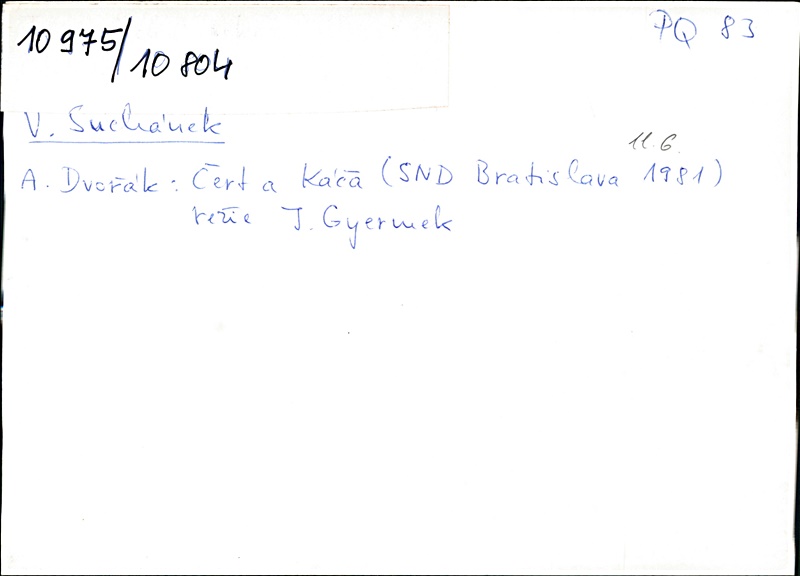 10 975/
10 804
PQ 83
V. Suchánek
11.6.
A. Dvořák: Čert a Káča (SND Bratislava 1981)
režie J. Gyermek